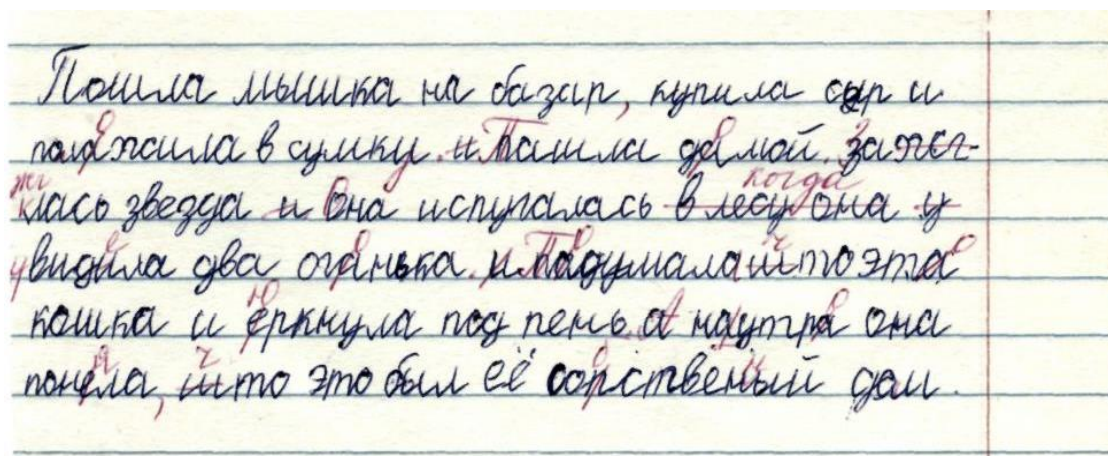 Пошла мышка на базар, купила сыр и
положила в сумку. и Пашла дамой. Зажег-
когда
клась звезда и Она испугалась в лесу она у
видила два оганька. и Падумала што эта
кошка и ёркнула под пень. а наутра она
понела, што это был её сопственый дом.